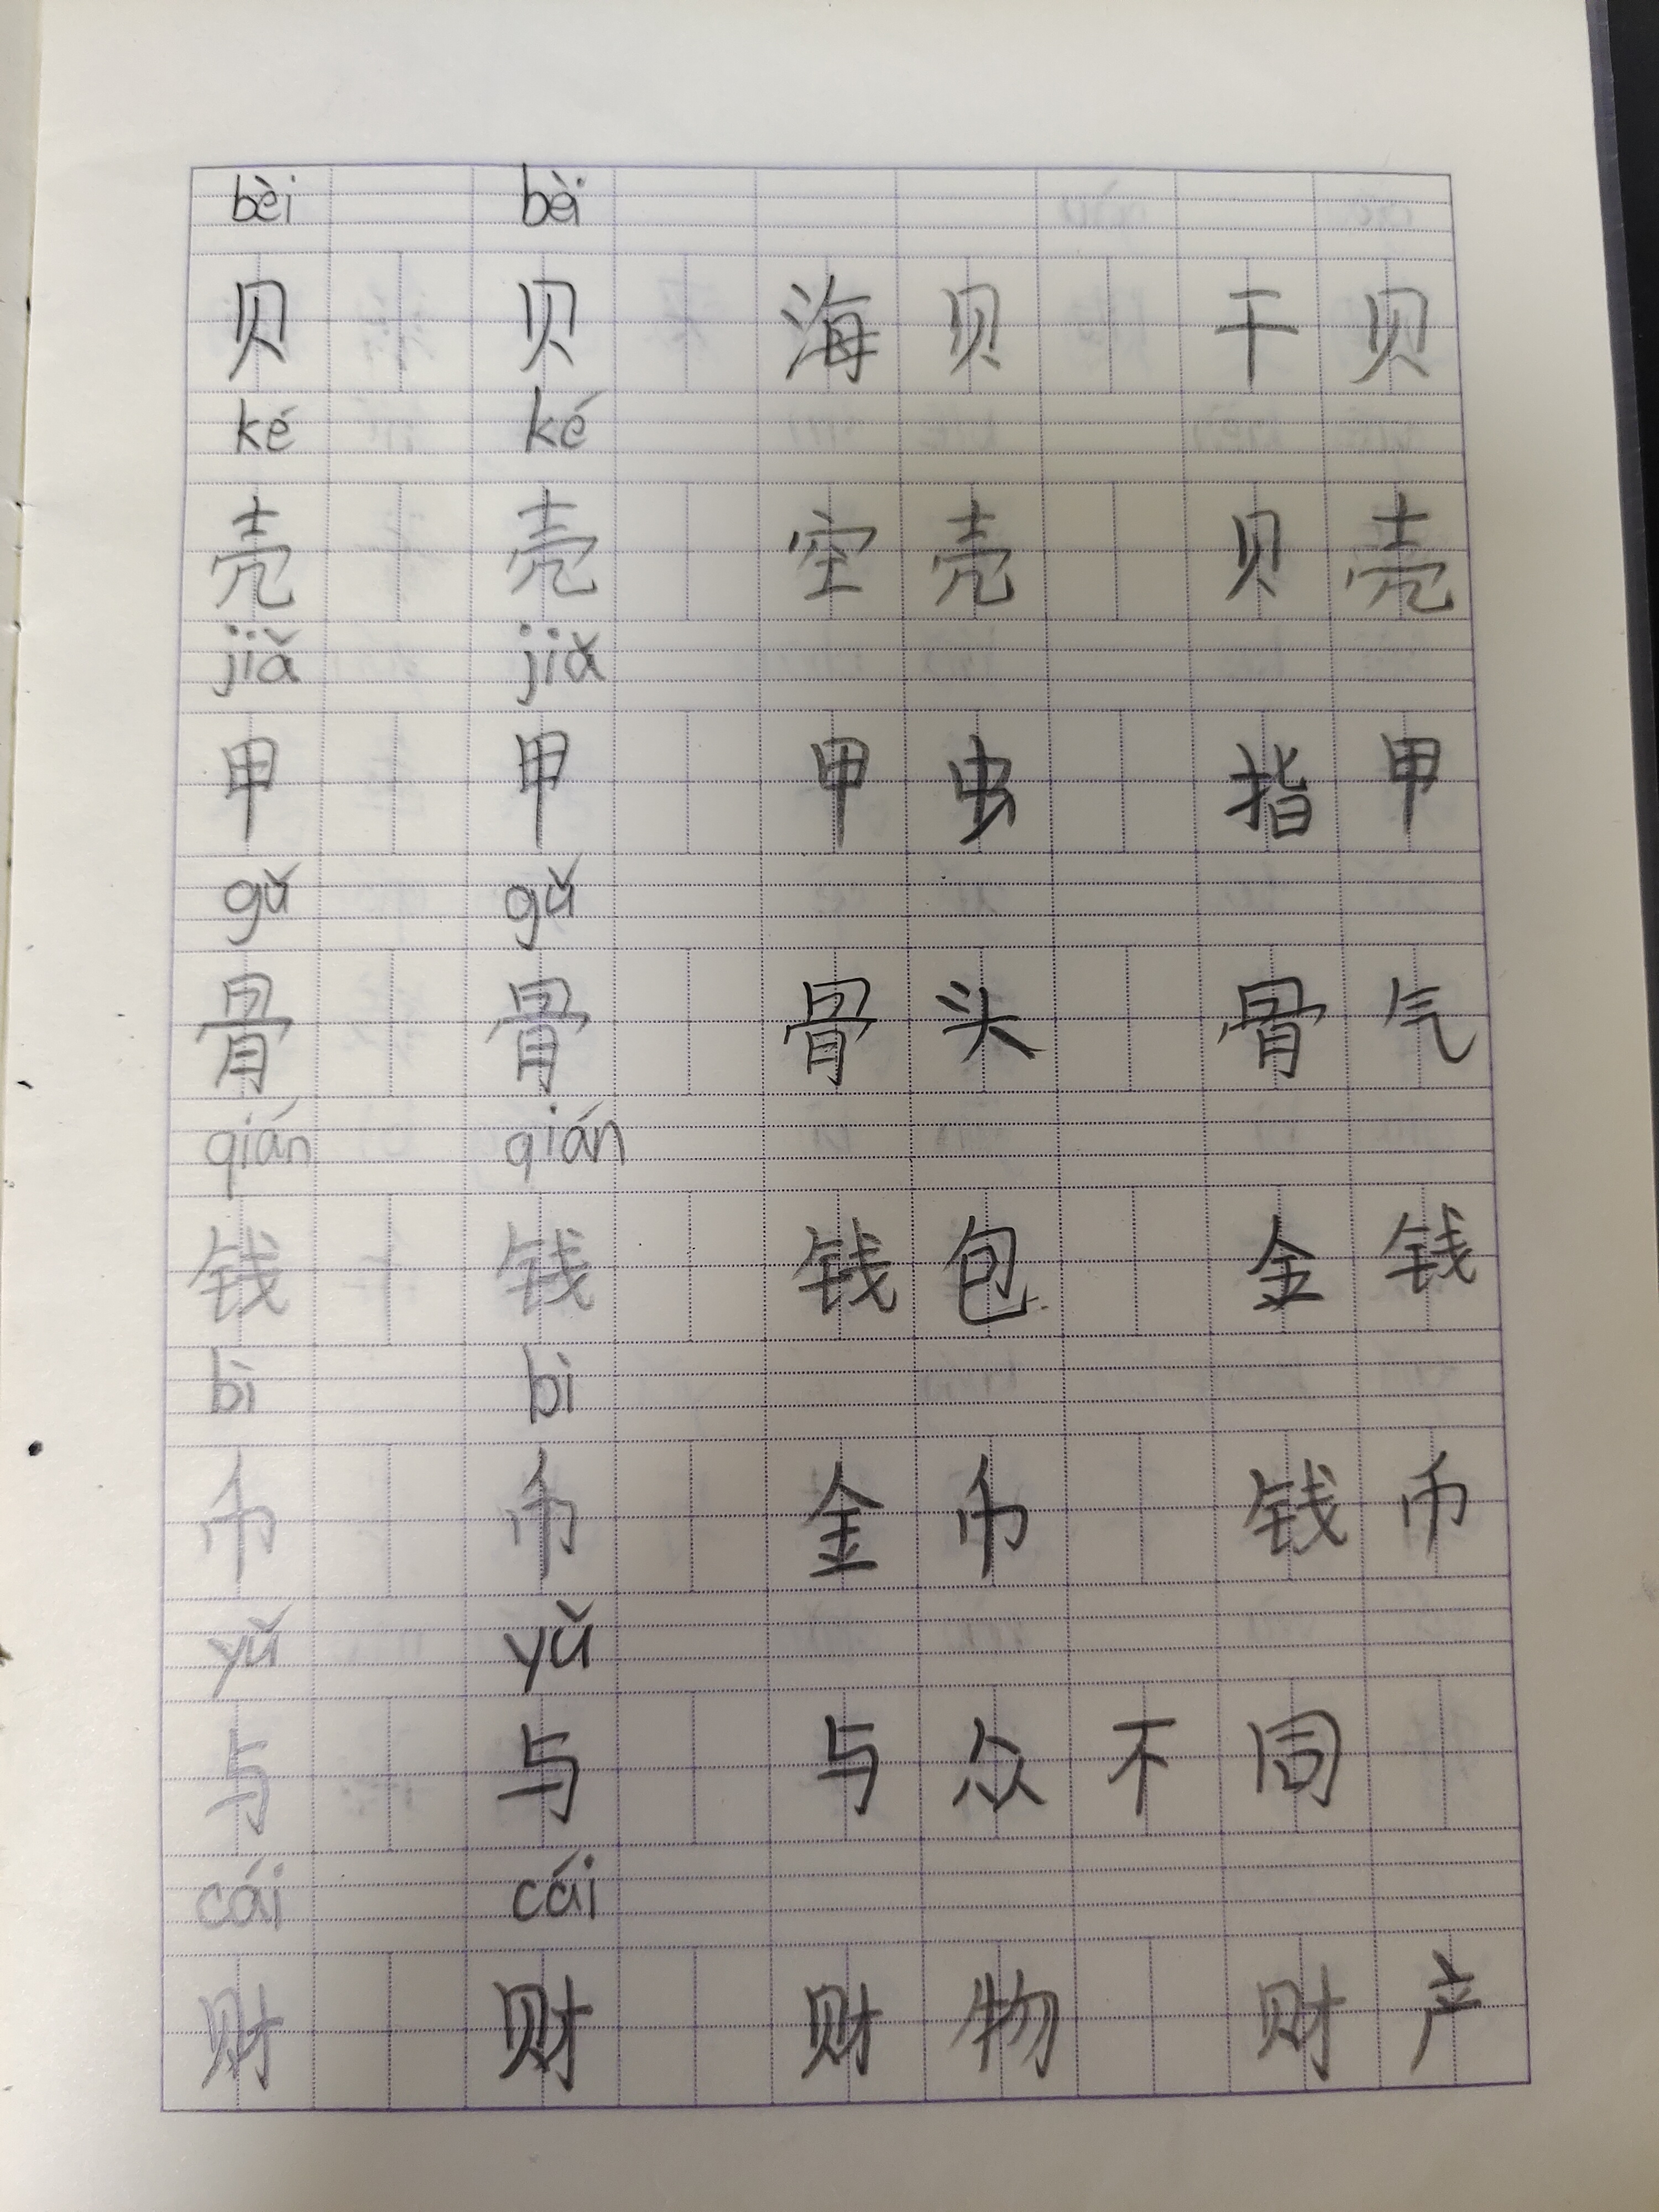 bèi bèi
贝 贝 海贝 干贝
ké ké
壳 壳 空壳 贝壳
jiǎ jiǎ
甲 甲 甲虫 指甲
gǔ gǔ
骨 骨 骨头 骨气
qián qián
钱 钱 钱包 金钱
bì bì
币 币 金币 钱币
yǔ yǔ
与 与 与众不同
cái cái
财 财 财物 财产